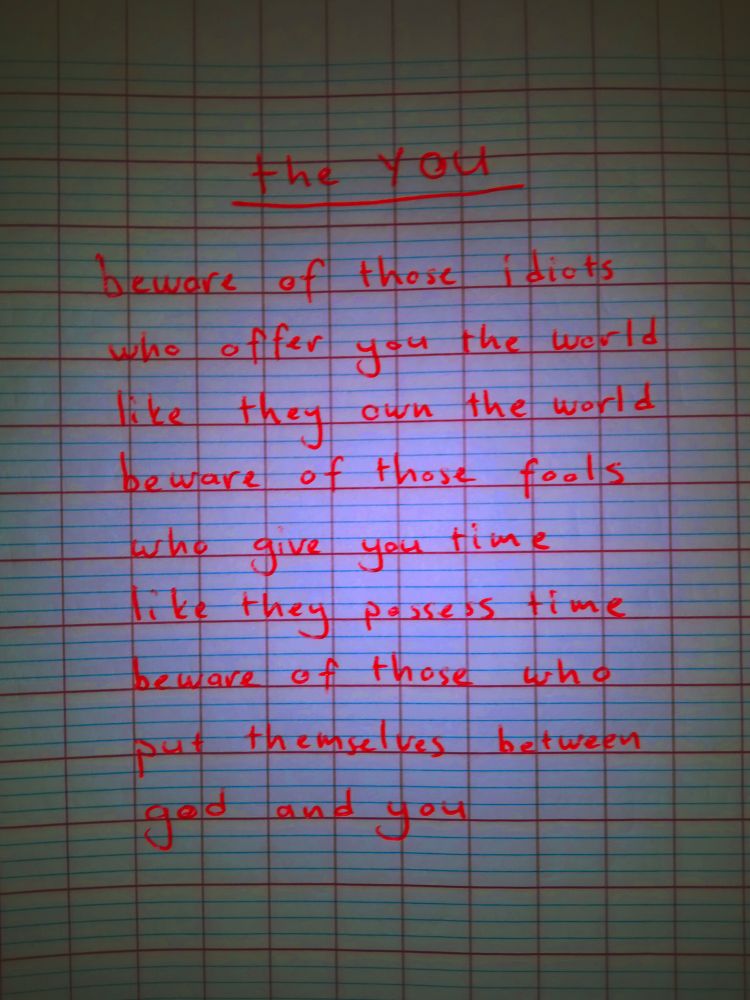 the YOU
beware of those idiots
who offer you the world
like they own the world
beware of those fools
who give you time
like they possess time
beware of those who
put themselves between
god and you